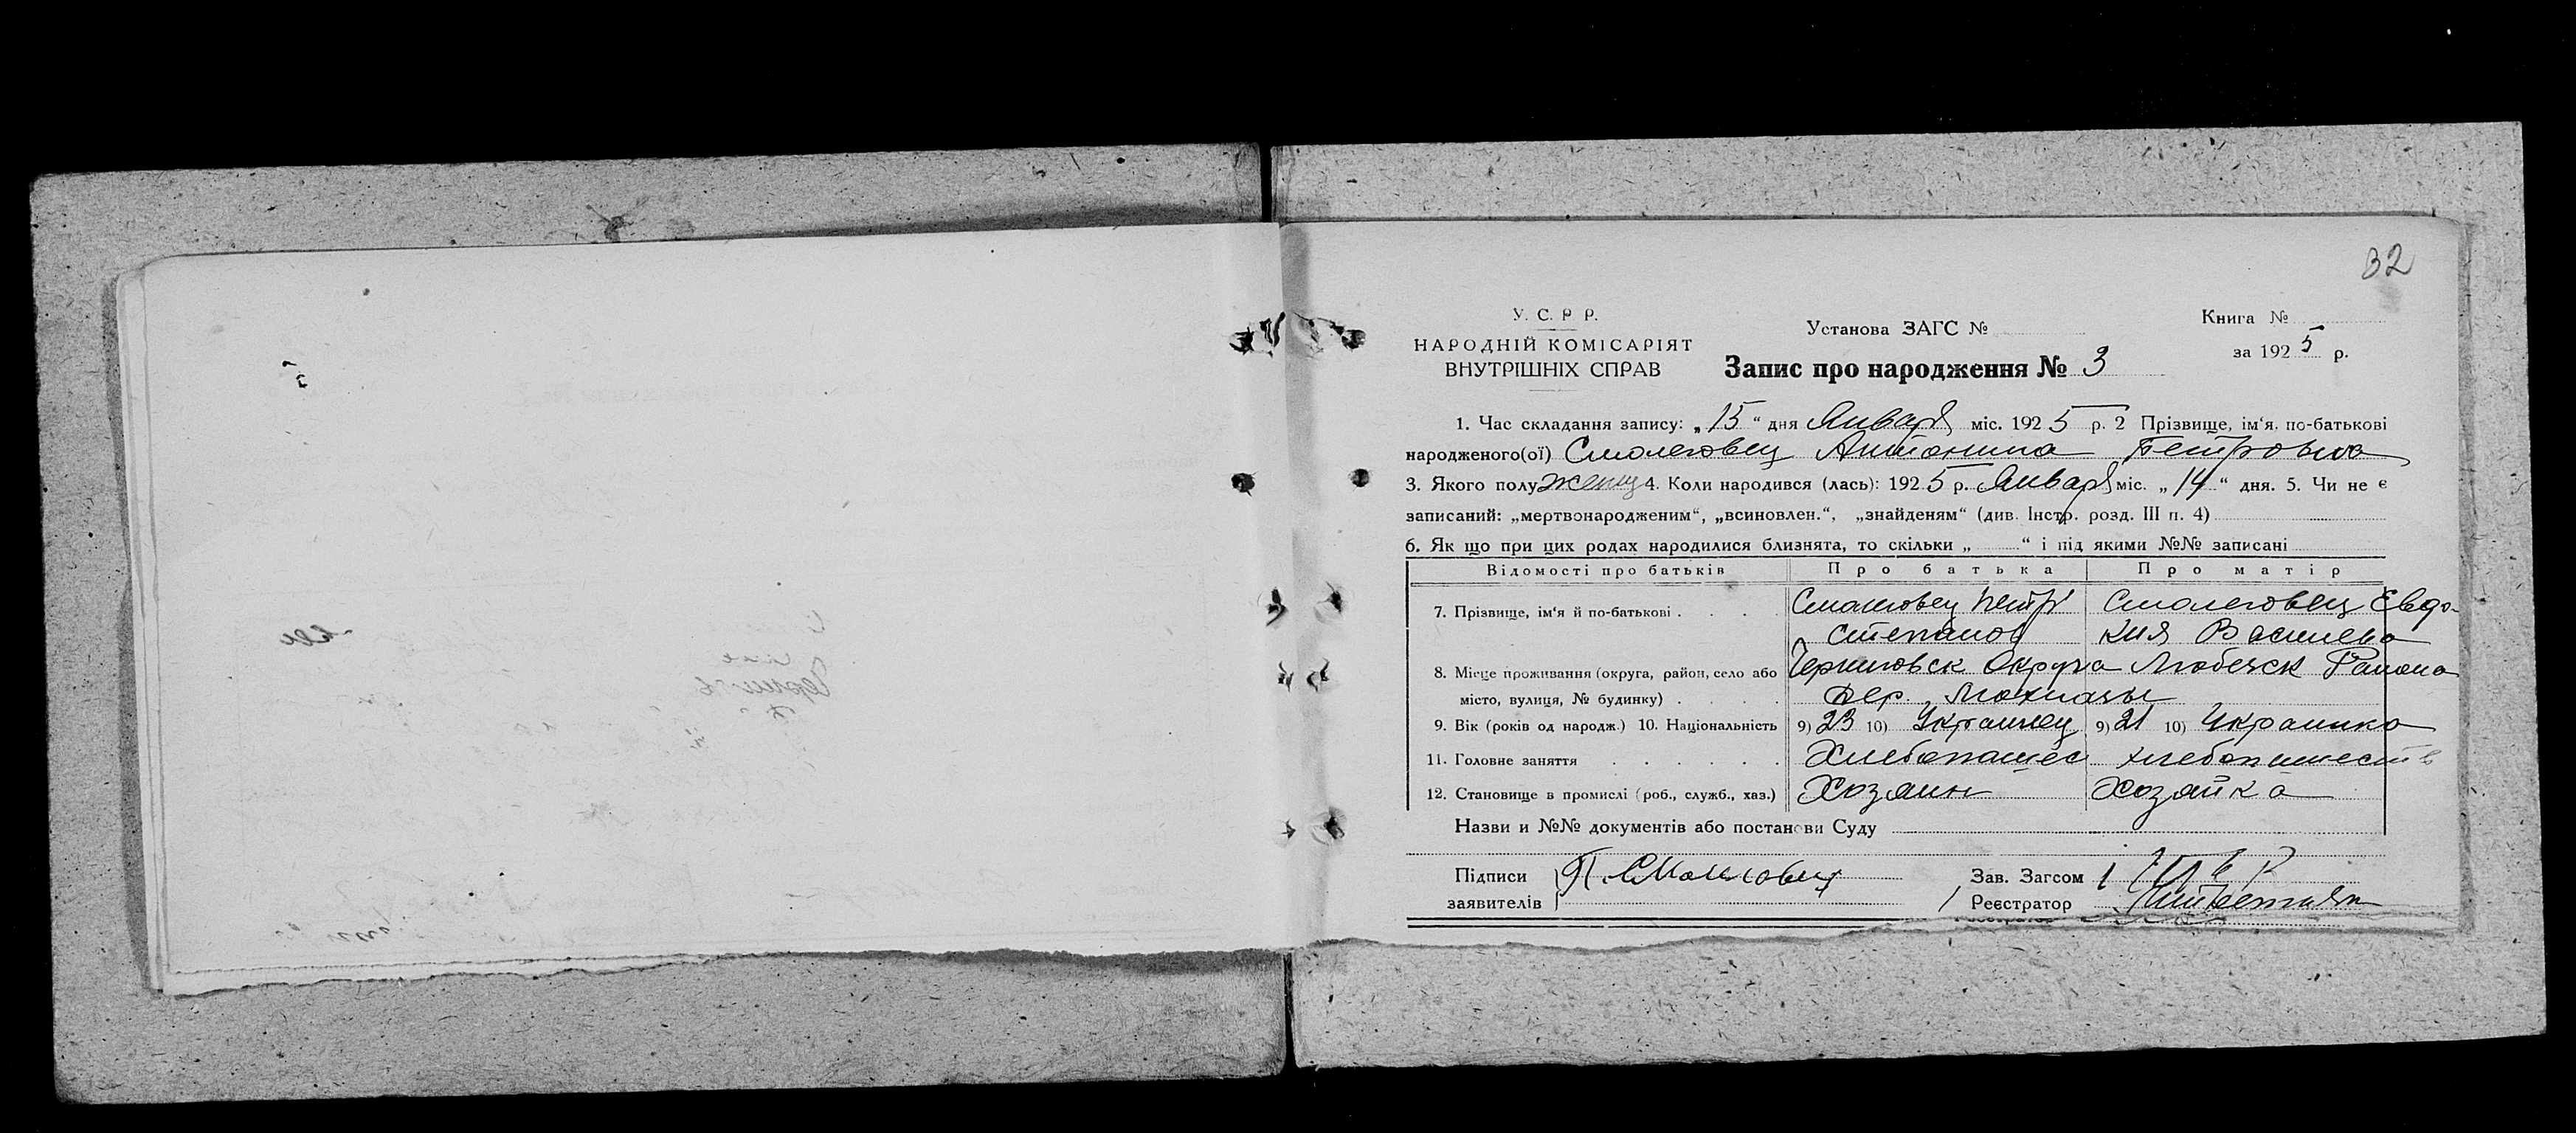 32
У. С. Р Р.
НАРОДНІЙ КОМІСАРІЯТ
ВНУТРІШНІХ СПРАВ
Установа ЗАГС №
Запис про народження № 3
Книга №
за 1925 р.
1. Час складання запису: „15“ дня Января міс. 1925 р. 2 Прізвище, ім‘я, по-батькові
народженого(ої) Смоляговец Антонина Петровна
3. Якого полу женщ 4. Коли народився (лась): 1925 р. Января міс. „14“ дня. 5. Чи не є
записаний: „мертвонародженим“, „всиновлен.“, „знайденям“ (див. Інстр. розд. III п. 4)
6. Як що при цих родах народилися близнята, то скільки „ “ і під якими №№ записані
Відомості про батьків Про батька Про матір
7. Прізвище, ім‘я й по-батькові . . . . Смоляговец Петр Смоляговец Евдо-
Степанов кия Василева
8. Місце проживання (округа, район, село або Черниговск Округа Любечск Района
місто, вулиця, № будинку) . . . . дер.
9. Вік (років од народж.) 10. Національність 9) 23 10) Украинец 9) 21 10) Украинка
11. Головне заняття . . . . . . Хлебопашес хлебопашеств
12. Становище в промислі (роб., служб., хаз.) Хозяин Хозяйка
Назви и №№ документів або постанови Суду
Підписи
заявителів
Зав. Загсом
Реєстратор